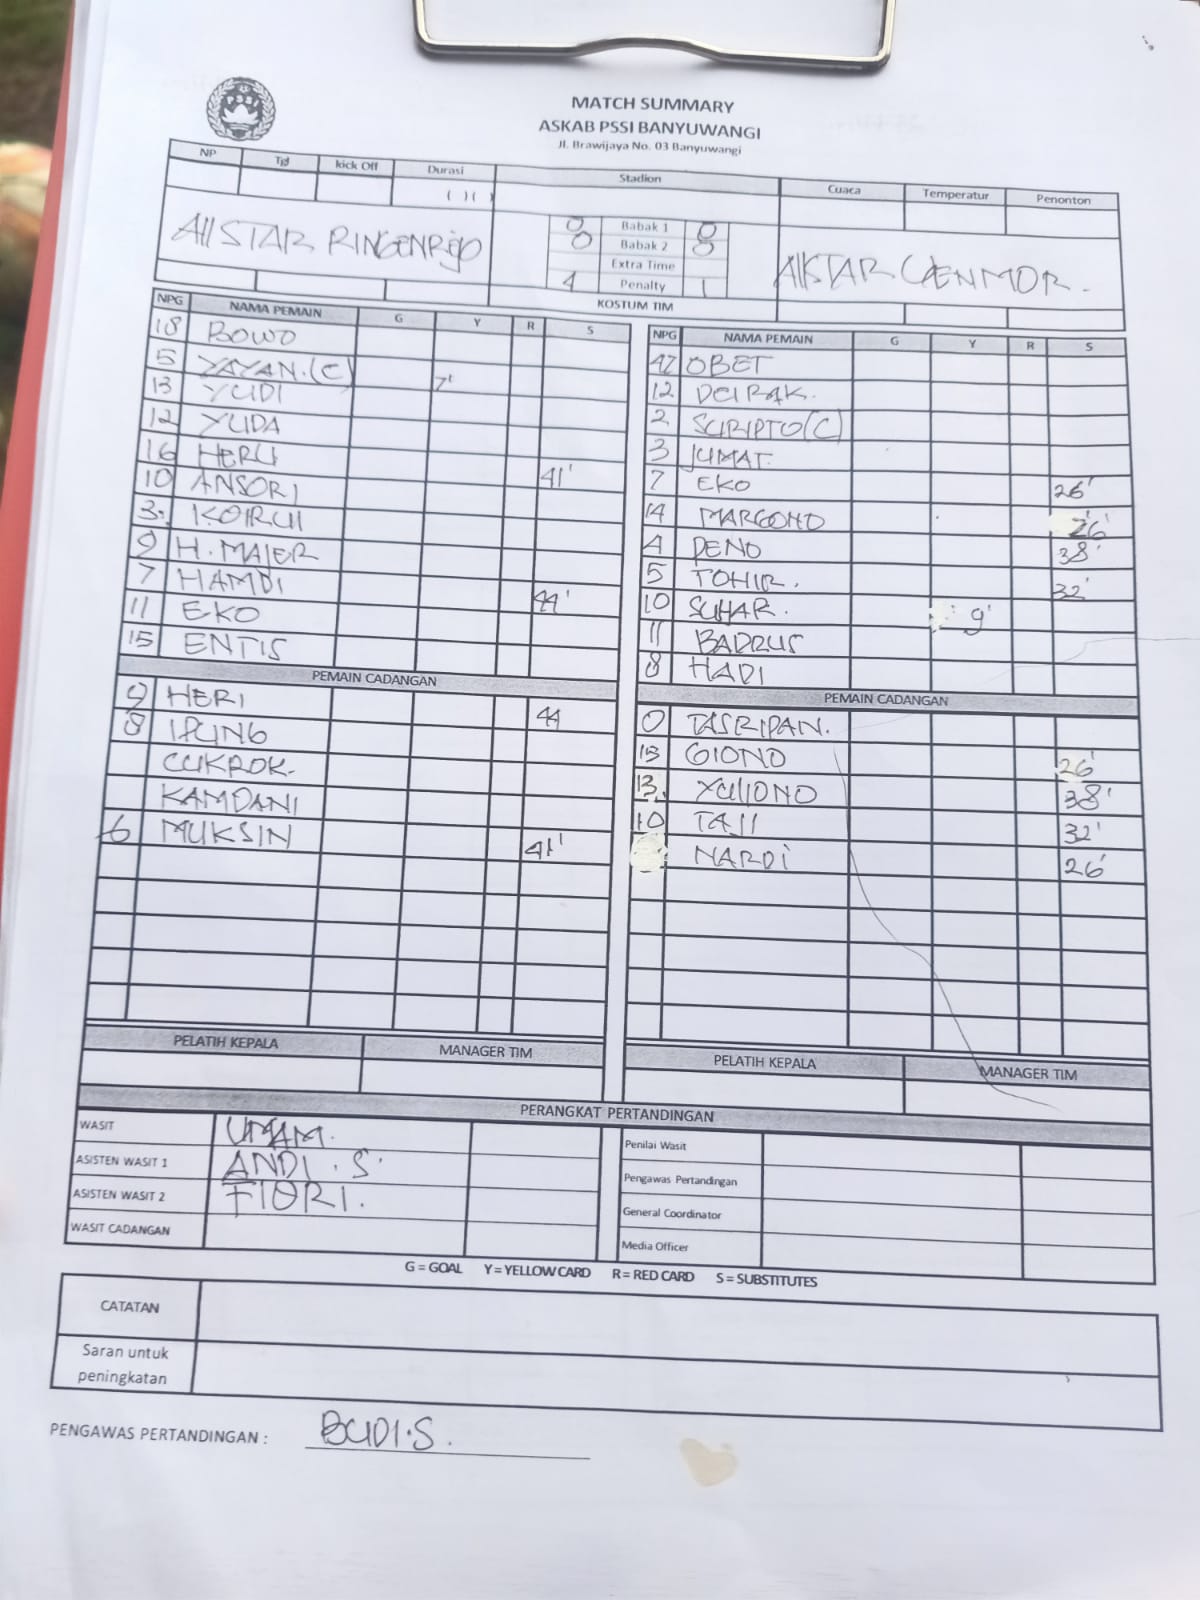 PSSI
MATCH SUMMARY
ASKAB PSSI BANYUWANGI
Jl. Brawijaya No. 03 Banyuwangi
NP Tgl kick Off Durasi Stadion Cuaca Temperatur Penonton
( ) ( )
All STAR RINGENREJO
0 Babak 1 0
0 Babak 2 0
Extra Time
4 Penalty 1
AllSTAR
KOSTUM TIM
NPG NAMA PEMAIN G Y R S
18 BOWO
5 YAYAN.(C) 7'
13 YUDI
12 YUDA
16 HERU 41'
10 ANSORI
3.
9 H. MAJER
7 HAMDI 44'
11 EKO
15 ENTIS
PEMAIN CADANGAN
9 HERI 44
8 IPUNG
CUKROK.
KAMDANI
6 MUKSIN 41'
PELATIH KEPALA MANAGER TIM
NPG NAMA PEMAIN G Y R S
OBET
12
2 SURIPTO(C)
3 JUMAT.
7 EKO 26'
14 MARGONO 26'
4 PENO 38'
5 TOHIR. 32'
10 SUHAR. 9'
11 BADRUS
8 HADI
PEMAIN CADANGAN
0 TASRIPAN.
15 GIONO 26'
13. YULIONO 38'
10 TAJI 32'
NARDI 26'
PELATIH KEPALA MANAGER TIM
PERANGKAT PERTANDINGAN
WASIT UMAM.
ASISTEN WASIT 1 ANDI . S.
ASISTEN WASIT 2 FIORI.
WASIT CADANGAN
Penilai Wasit
Pengawas Pertandingan
General Coordinator
Media Officer
G = GOAL Y = YELLOW CARD R = RED CARD S = SUBSTITUTES
CATATAN
Saran untuk
peningkatan
PENGAWAS PERTANDINGAN : BUDI.S.